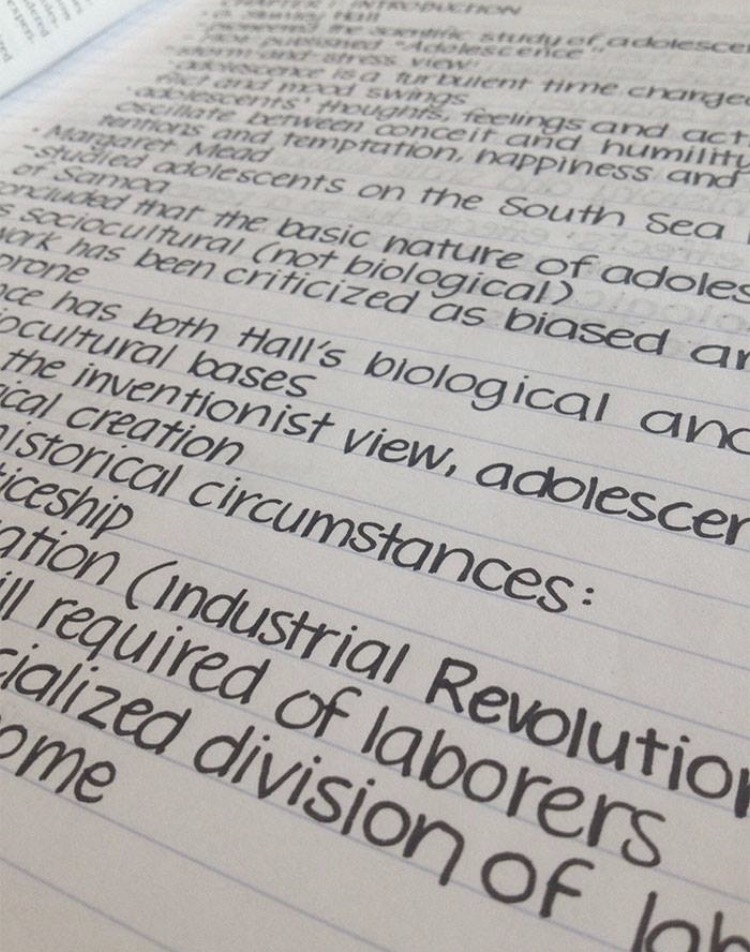 CHAPTER 1: INTRODUCTION
• G. Stanley Hall
-pioneered the scientific study of adolescen
-1904: published "Adolescence"
-storm-and-stress view:
adolescence is a turbulent time charged
flict and mood swings
•adolescents' thoughts, feelings and acti
oscillate between conceit and humility
tentions and temptation, happiness and
• Margaret Mead
-studied adolescents on the South Sea
of Samoa
oncluded that the basic nature of adoles
s sociocultural (not biological)
work has been criticized as biased an
prone
nce has both Hall's biological and
iocultural bases
the inventionist view, adolescen
ical creation
historical circumstances:
ticeship
ation (Industrial Revolution
ill required of laborers
cialized division of lab
ome